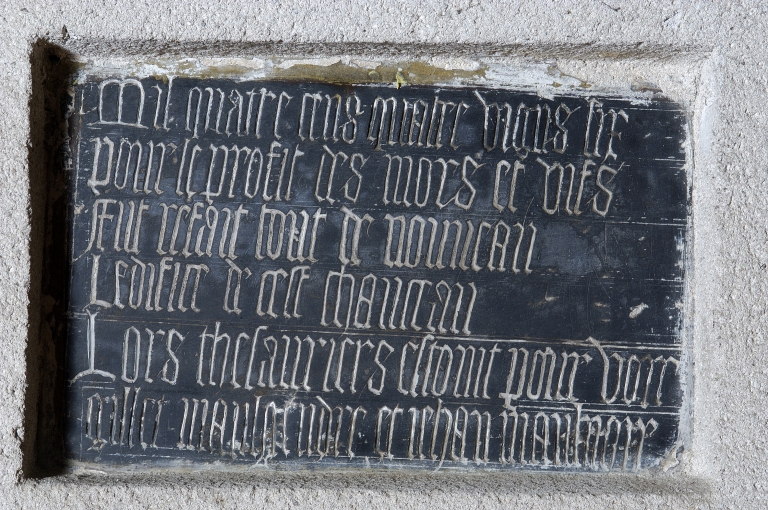 Mil quatre cens quatre vigns six
pour le profit des mors et vifs
Fut refait tout de nouueau
Ledifice de cest chanceau
Lors thesauriers estoint pour voir
gillet et iehan